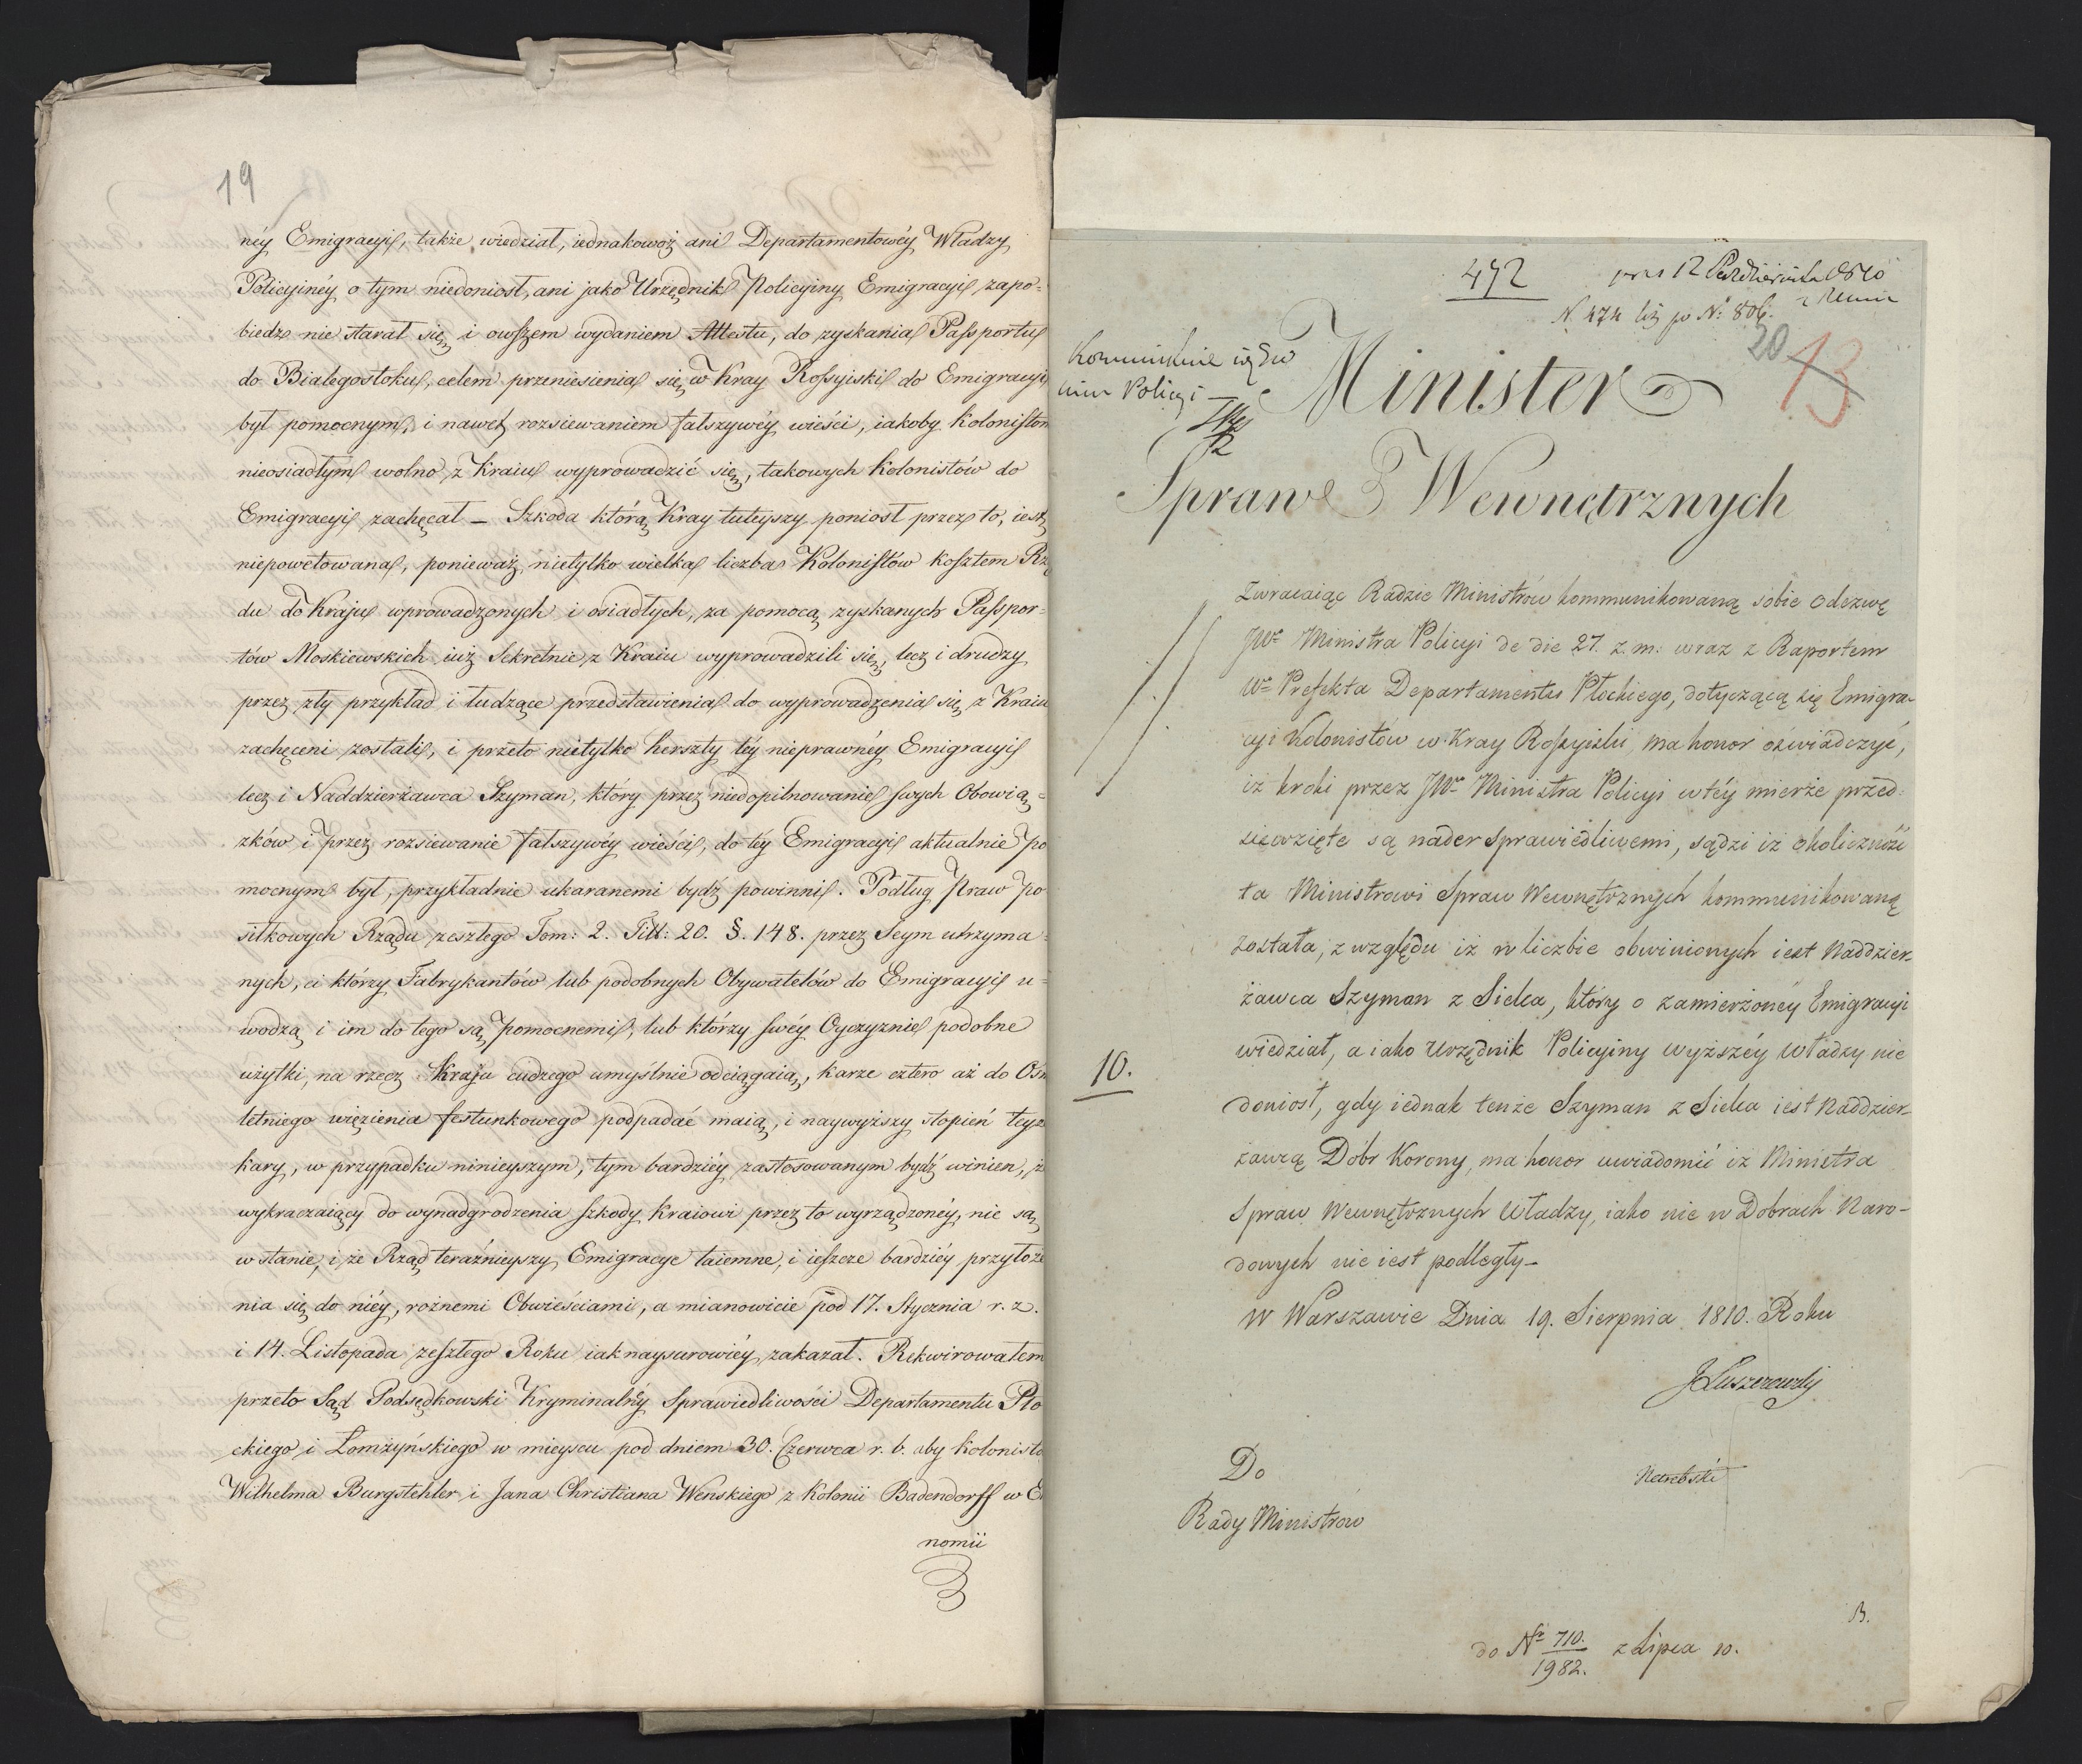 19
néy Emigracyi, także wiedział, iednakowoż ani Departamentowéy Władzy
Policyinéy o tym niedoniosł, ani jako Urzędnik Policyiny Emigracyi zapo=
biedz nie starał się, i owszem wydaniem Attestu, do zyskania Passportu
do Białegostoku, celem przeniesienia się w Kray Rossyiski do Emigracyi
był pomocnym, i nawet rozsiewaniem fałszywéy wieści, iakoby Koloniston
nieosiadłym wolno z Kraiu wyprowadzić się, takowych Kolonistów do
Emigracyi zachęcał – Szkoda którą Kray tuteyszy poniosł przez to, iest
niepowetowana, ponieważ nietylko wielka liczba Kolonistów kosztem Rzą
du do Kraju wprowadzonych i osiadłych, za pomocą zyskanych Passpor=
tów Moskiewskich iuż Sekretnie z Kraiu wyprowadzili się, lecz i drudzy
przez zły przykład i łudzące przedstawienia do wyprowadzenia się z Kraiu
zachęceni zostali, i przeto nietylko herszty téy nieprawnéy Emigracyi
lecz i Naddzierżawca Szyman, który przez niedopilnowanie swych Obowią=
zków i przez rozsiewanie fałszywéy wieści, do téy Emigracyi aktualnie po
mocnym był, przykładnie ukaranemi bydź powinni. Podług Praw po
siłkowych Rządu zeszłego Tom: 2. Titt: 20. §. 148. przez Seym utrzyma=
nych, ci którzy Fabrykantów lub podobnych Obywatelów do Emigracyi u=
wodzą i im do tego są pomocnemi, lub którzy swéy Oyczyznie podobne
użytki, na rzecz Kraju cudzego umyślnie odciągaią, karze cztero aż do Ośm
letniego więzienia festunkowego podpadać maią, i naywyższy stopień teyż
kary, w przypadku ninieyszym, tym bardziéy zastosowanym bydź winien, iż
wykraczaiący do wynadgrodzenia szkody Kraiowi przez to wyrządzonéy, nie są
w stanie, i że Rząd teraźnieyszy Emigracye taiemne, i ieszcze bardziéy przyłoże
nia się do niéy, rożnemi Obwieściami, a mianowicie pod 17. Stycznia r. z.
i 14. Listopada zeszłego Roku iak naysurowiéy zakazał. Rekwirowałem
przeto Sąd Podsędkowski Kryminalnéy Sprawiedliwości Departamentu Pło
ckiego i Łomżyńskiego w mieyscu pod dniem 30. Czerwca r. b. aby Kolonistó
Wilhelma Burgstehler i Jana Christiana Wenskiego z Kolonii Badendorff w E
nomii
472
pres 12 Października 1810
N. 474 liż po N: 806.
20
13
Minister
Spraw Wewnętrznych
Zwracaiąc Radzie Ministrów kommunikowaną sobie Odezwę
JWo Ministra Policyi de die 27. z. m: wraz z Raportem
Wo Prefekta Departamentu Płockiego, dotyczącą się Emigra-
cyi Kolonistów w Kray Rossyiski, ma honor oświadczyć,
iż kroki przez JWo Ministra Policyi w téy mierze przed
sięwzięte są nader sprawiedliwemi, sądzi iż okoliczność
ta Ministrowi Spraw Wewnętrznych kommunikowaną
została, z względu iż w liczbie obwinionych iest Naddzier-
żawca Szyman z Sielca, który o zamierzonéy Emigracyi
wiedział, a iako Urzędnik Policyiny wyższéy Władzy nie
10.
doniosł, gdy iednak tenże Szyman z Sielca iest Naddzier-
żawcą Dóbr Korony, ma honor uwiadomić iż Ministra
Spraw Wewnętrznych Władzy, iako nie w Dobrach Naro-
dowych nie iest podległy –
w Warszawie Dnia 19. Sierpnia 1810. Roku
JŁuszczewski
Do
Rady Ministrów
B.
do No 710./1982. z Lipca 10.